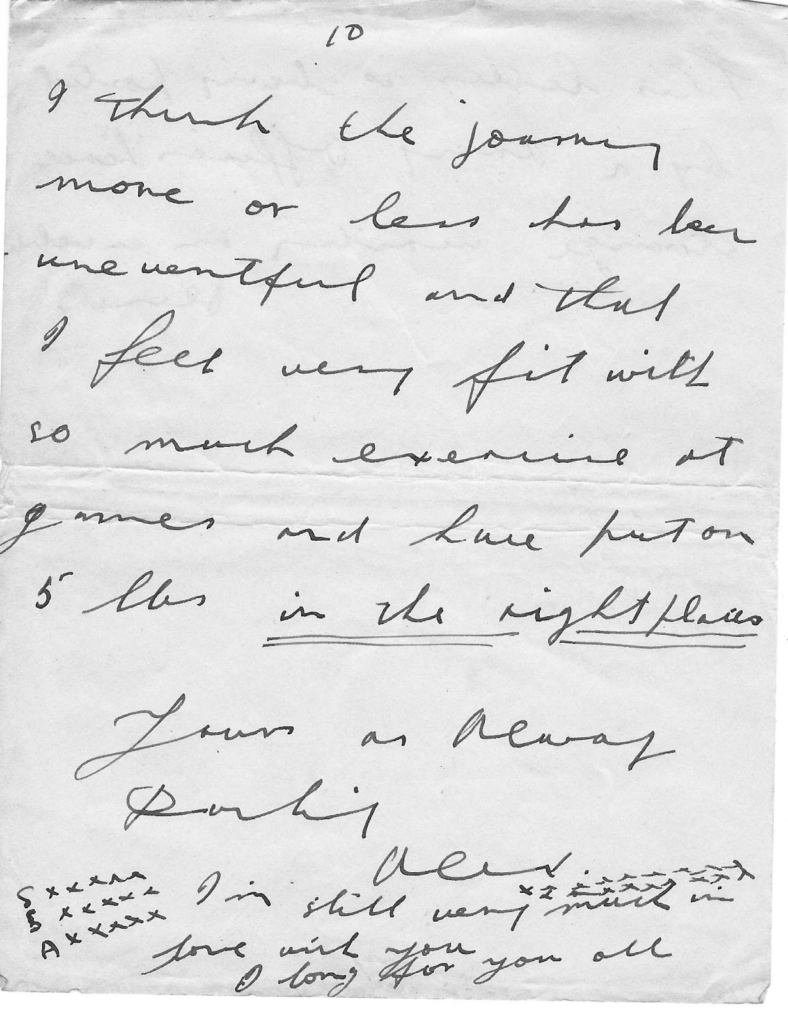 10
I think the journey
more or less has been
uneventful and that
I feel very fit with
so much exercise at
games and have put on
5 lbs in the right places
Yours as Always
Darling
Alex.
S x x x x x
B x x x x x
A x x x x x
I'm still very much in
love with you
I long for you all